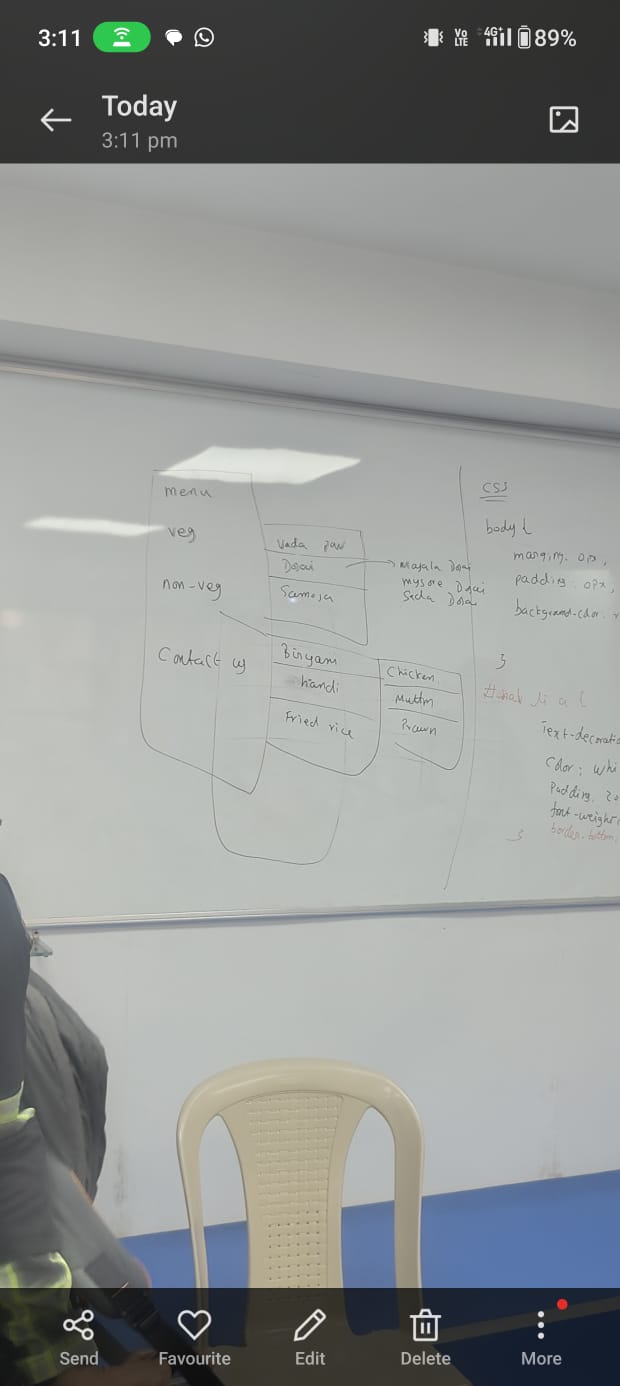 3:11
Vo LTE 4G+ 89%
Today
3:11 pm
menu
veg
non-veg
Contact us
Vada pav
Dosai
Samosa
Masala Dosai
mysore Dosai
Sada Dosa
Biryani
handi
Fried rice
Chicken
Mutton
Prawn
CSS
body {
margin: 0px,
padding: 0px,
background-color:
}
li a {
Text-decoratio
Color: whi
Padding: 20
font-weight
border-bottom:
}
Send
Favourite
Edit
Delete
More